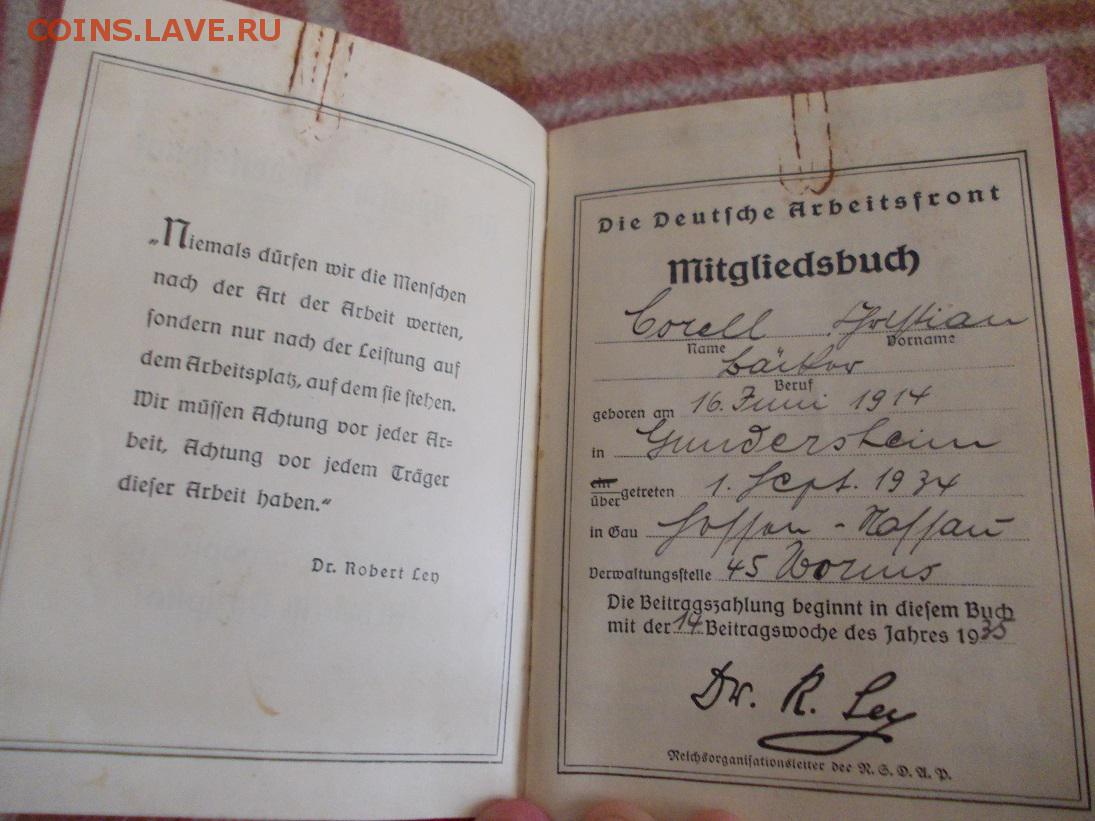 COINS.LAVE.RU
„Niemals dürfen wir die Menschen
nach der Art der Arbeit werten,
sondern nur nach der Leistung auf
dem Arbeitsplatz, auf dem sie stehen.
Wir müssen Achtung vor jeder Ar=
beit, Achtung vor jedem Träger
dieser Arbeit haben.“
Dr. Robert Ley
Die Deutsche Arbeitsfront
Mitgliedsbuch
Corell
Name Vorname
Bäcker
Beruf
geboren am 16. Juni 1914
in Gundersheim
ein
übergetreten 1. Sept. 1934
in Gau Hessen-Nassau
Verwaltungsstelle 45 Worms
Die Beitragszahlung beginnt in diesem Buch
mit der 14 Beitragswoche des Jahres 1935
Dr. R. Ley
Reichsorganisationsleiter der N.S.D.A.P.